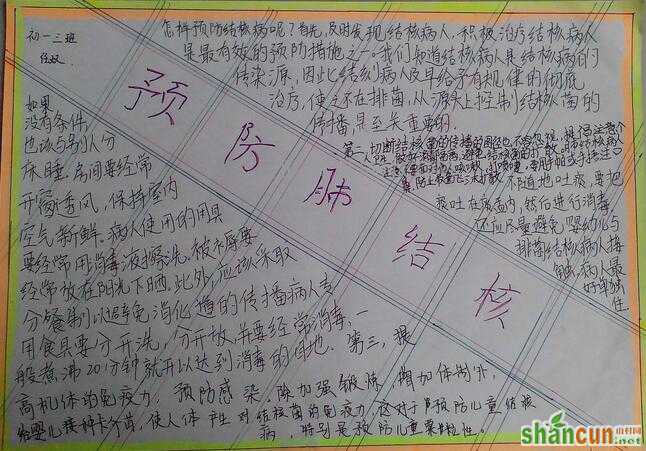 初一三班
怎样预防结核病呢？首先，及时发现结核病人，积极治疗结核病人
是最有效的预防措施之一。我们知道结核病人是结核病的
传染源，因此比结核病人及早给予有规律的彻底
治疗，使之不在排菌，从源头上控制结核菌的
传播是至关重要的。
预防肺结核
第二，切断结核菌的传播的途径也不容忽视，提倡注意个
不随地吐痰，要把
痰吐在痰盂内，然后进行消毒
还应尽量避免婴幼儿与
排菌结核病人接
触，病人最
好单独
住
如果
没有条件，
也该与别人分
床睡，房间要经常
开窗透风，保持室内
空气新鲜。病人使用的用具
要经常用消毒液擦洗。被褥要
经常放在阳光下晒，此外，应该采取
分餐制以避免消化道的传播病人专
用食具要分开洗，分开放，并要经常消毒，一
般煮沸20分钟就可以达到消毒的目地。第三，提
高机体的免疫力，预防感染，除加强锻炼，增加体制外，
给婴儿接种卡介苗，使人体产生对结核菌的免疫力，这对于预防儿童结核
病，特别是预防儿童粟粒性。
shancun
山村网
.net